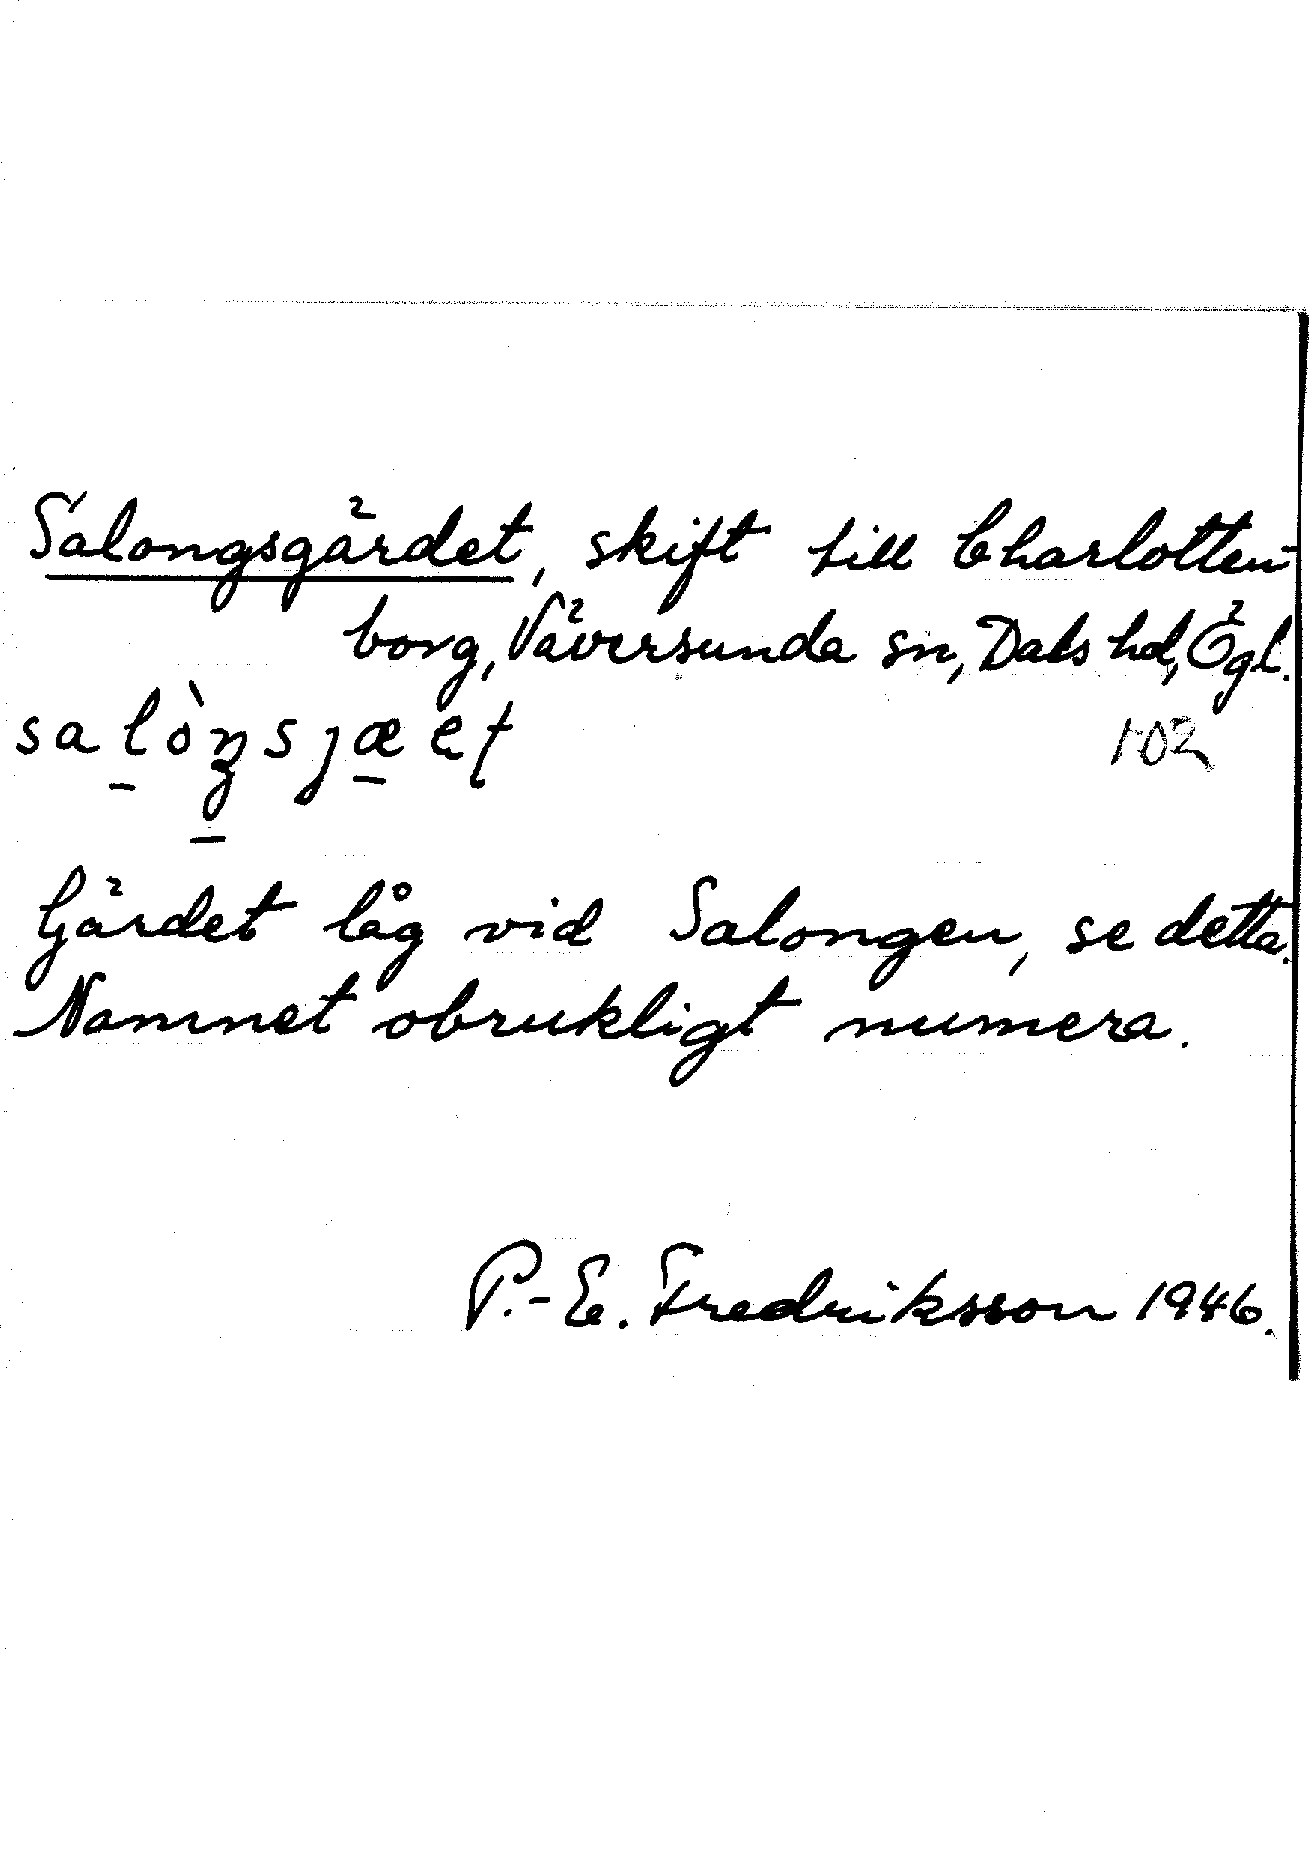 Salongsgärdet, skift till Charlotten-
borg, Väversunda sn, Dals hd, Ögl.
salòŋsjæet
102
Gärdet låg vid Salongen, se detta.
Namnet obrukligt numera.
P.-E. Fredriksson 1946.